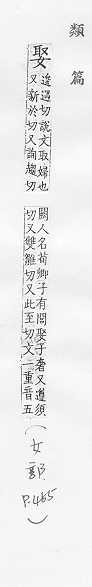 類篇
娶
逡遇切說文取婦也
又新於切又詢趨切
闕人名荀卿子有閭娶子奢又遵須
切又雙雛切又此至切文二重音五
(女部 P.465)